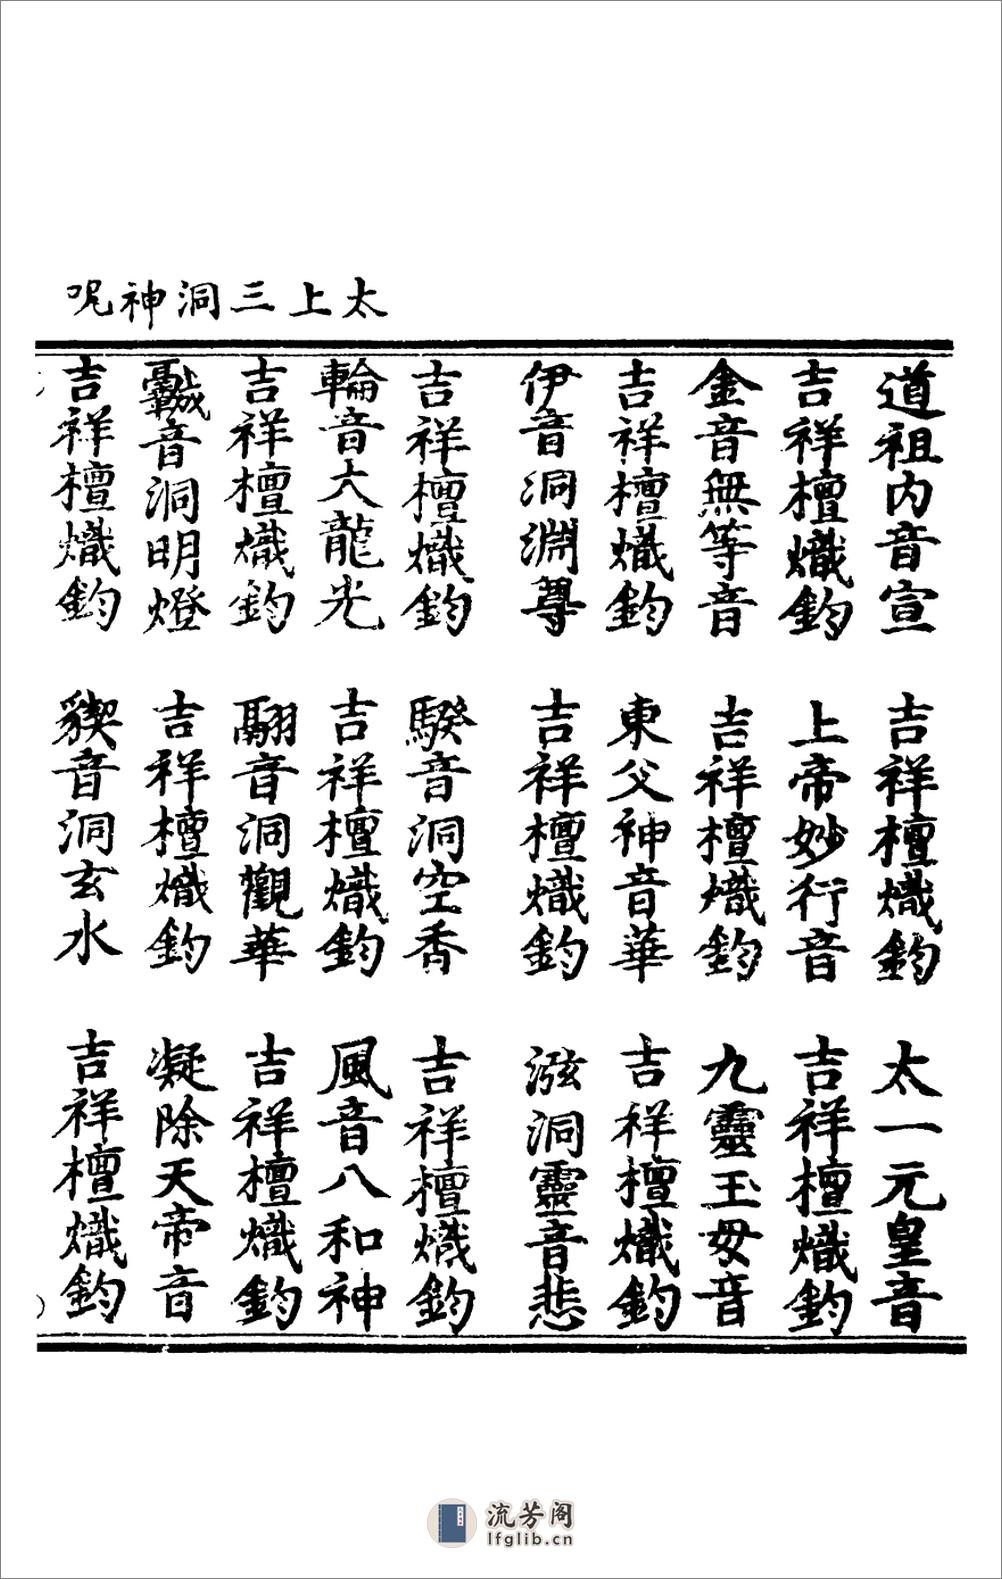 太上三洞神呪
道祖内音宣 吉祥檀熾鈞 太一元皇音
吉祥檀熾鈞 上帝妙行音 吉祥檀熾鈞
金音無等音 吉祥檀熾鈞 九靈玉母音
吉祥檀熾鈞 東父神音華 吉祥檀熾鈞
伊音洞淵尊 吉祥檀熾鈞 洞靈音悲
吉祥檀熾鈞 騤音洞空香 吉祥檀熾鈞
輪音大龍光 吉祥檀熾鈞 風音八和神
吉祥檀熾鈞 音洞觀華 吉祥檀熾鈞
音洞明燈 吉祥檀熾鈞 凝除天帝音
吉祥檀熾鈞 音洞玄水 吉祥檀熾鈞
流芳阁
lfglib.cn